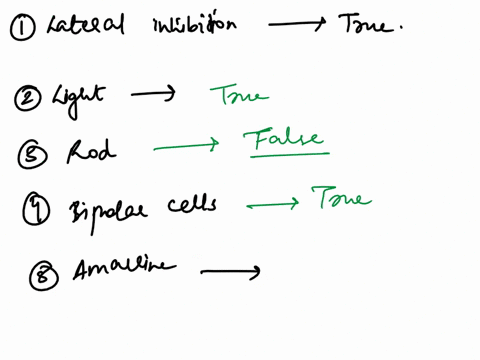 ① Lateral inhibition → True.
② Light → True
③ Rod → False
④ Bipolar cells → True
⑧ Amacrine →